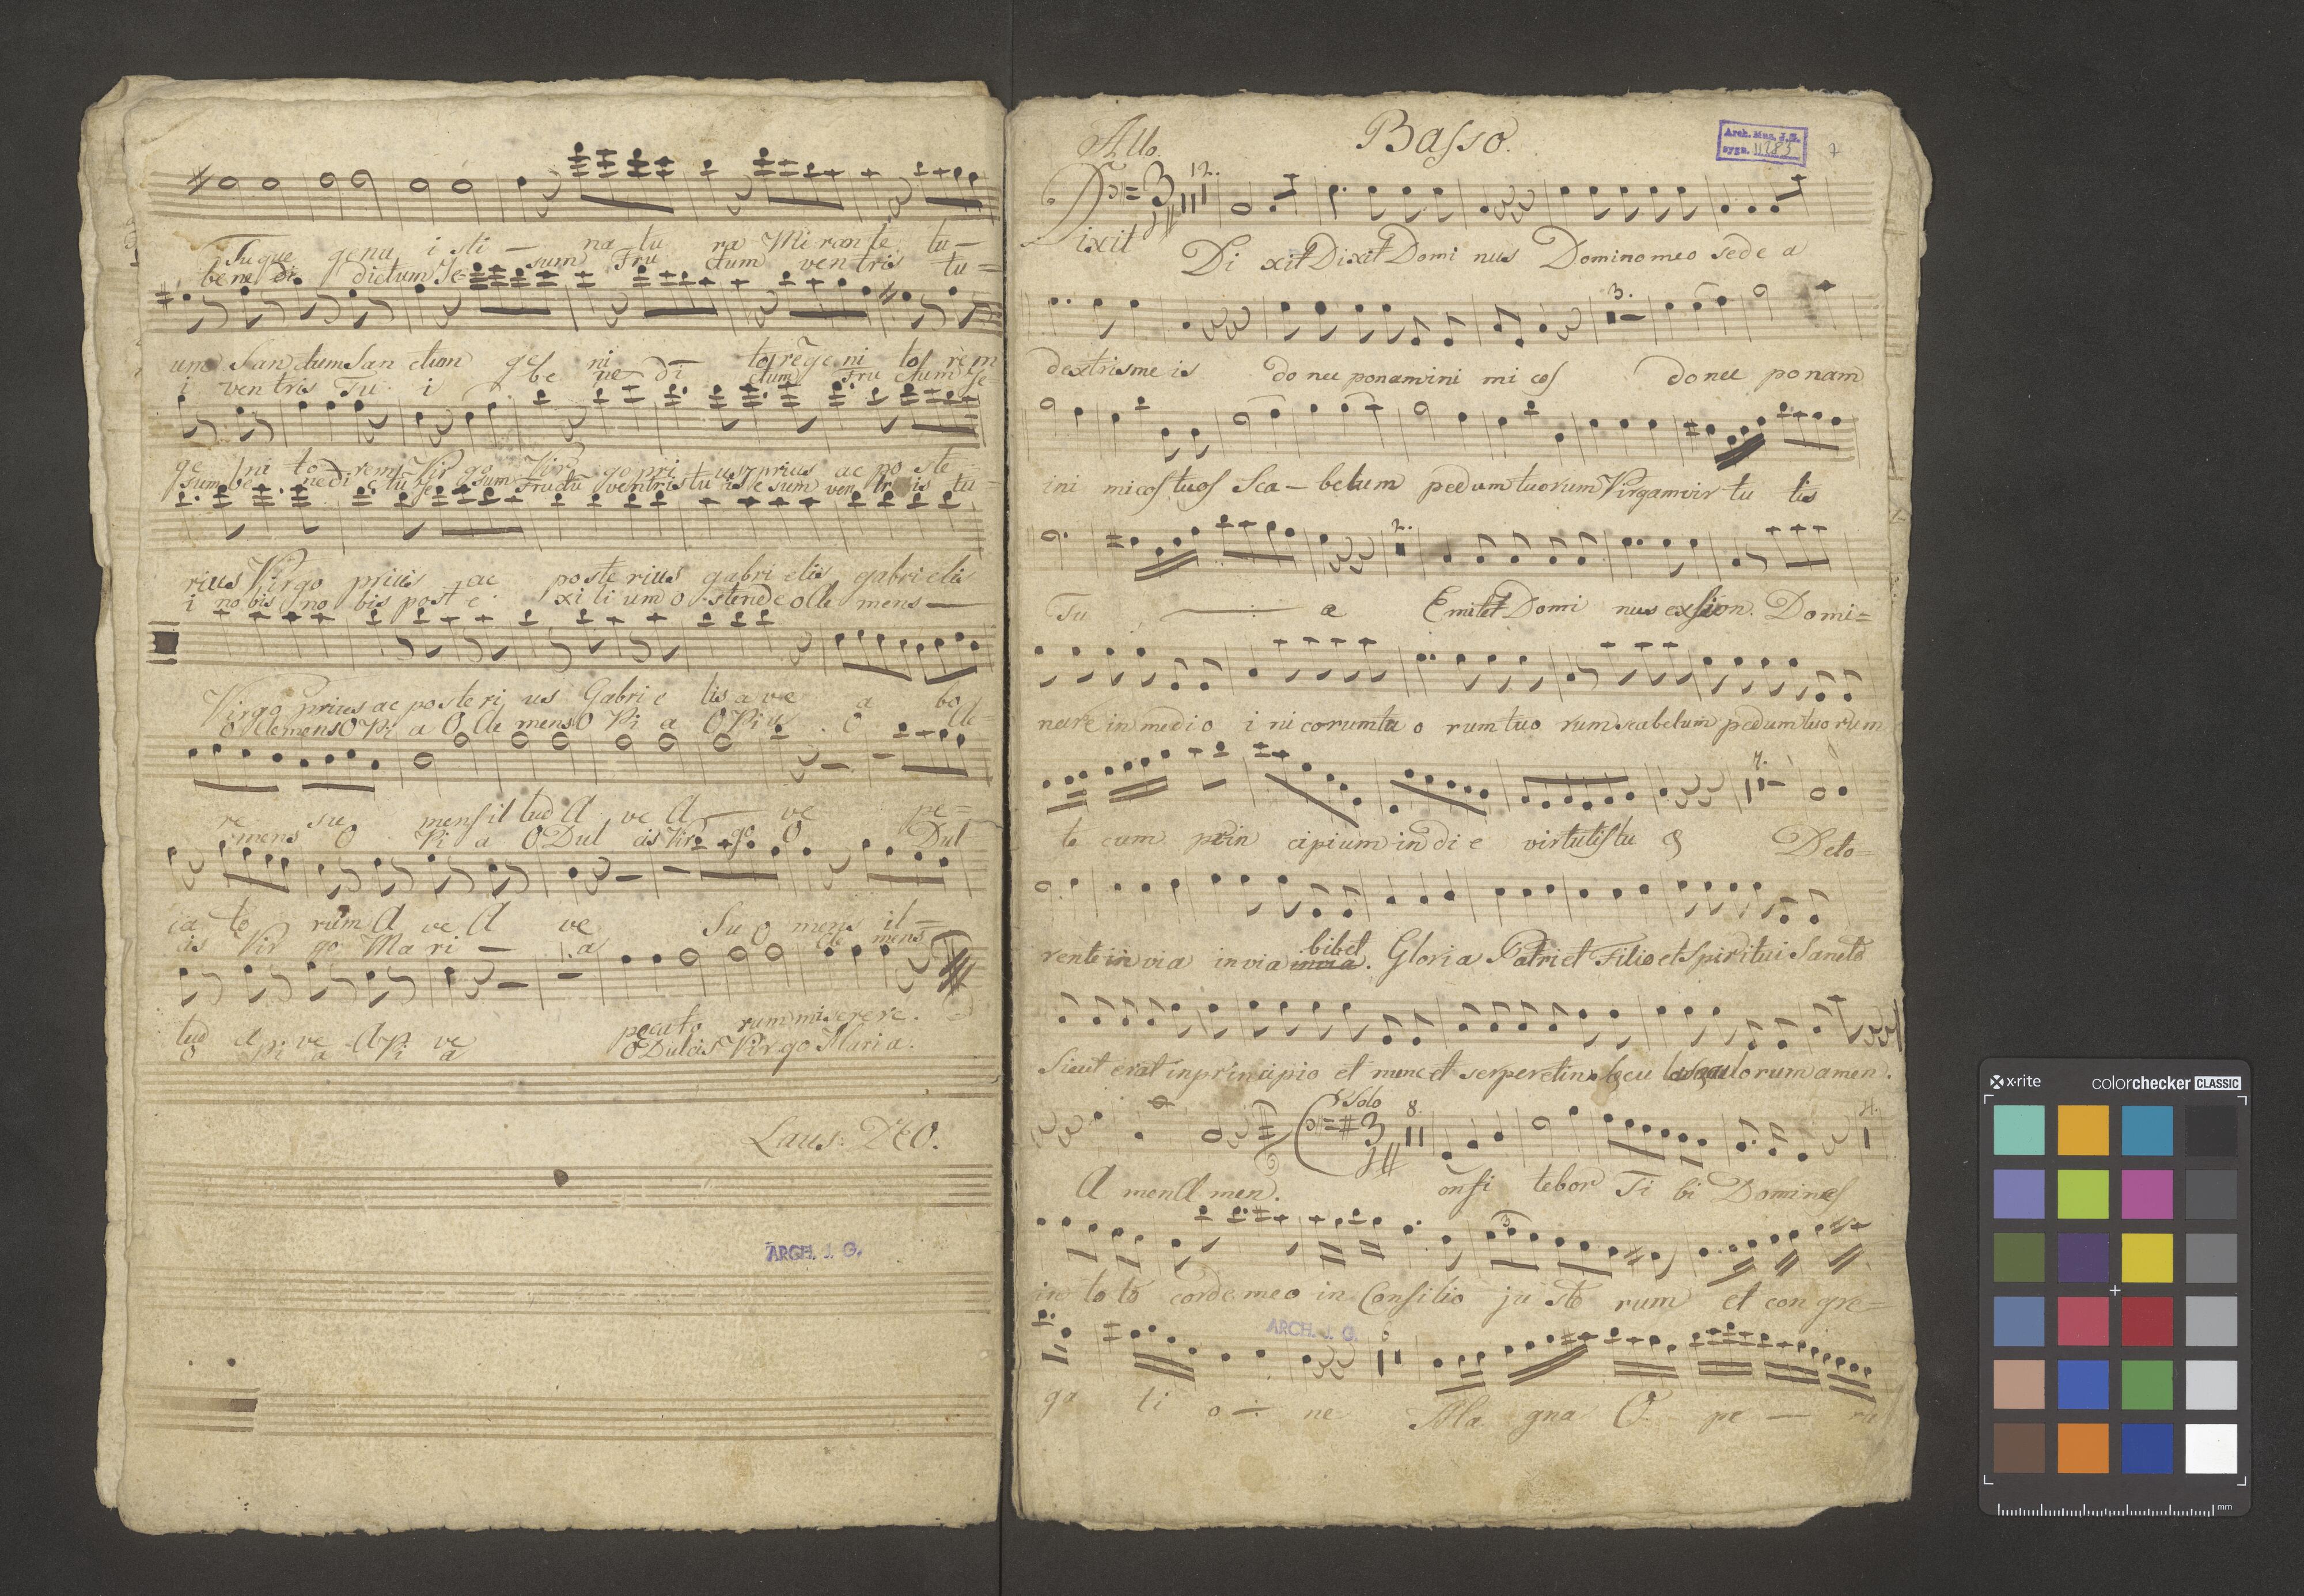 Tu quæ genu i sti — na tu ra Mi rante tu —
bene di dictum Je= sum Fru ctum ventris tu=
um San ctum San ctum ge ni to re ge ni to rem
i ventris Tu i be ne di ctum Fru ctum Je=
ge ni to rem Vir go Vir go pri us prius ac po ste
sum be nedi ctu ventris tu ven tris tu=
rius Virgo prius ac poste rius gabri elis gabri elis
i nobis no bis post e xi li um o stende o Cle mens —
Virgo prius ac poste ri us Gabri e lis a ve a bo
O Clemens O Pi a O Cle mens O Pi a O Pi a O Cle=
re su mens il lud A ve A — ve pe=
mens O Pi a O Dul cis Virgo O Dul
ca to rum A ve A ve Su mens il —
cis Vir go Ma ri — a O Cle mens
lud A ve A ve pecato rum miserere.
O pi a Pi a O Dulcis Virgo Maria.
Laus: DEO.
ARCH. J. G.
Basso.
Arch. Muz. J.G.
sygn. 11783
Allo.
12.
Dixit
Di xit Dixit Domi nus Domino meo sede a
3.
dextris me is do nec ponam ini mi cos donec ponam
ini micos tuos Sca — belum pedum tuorum Virgam vir tu tis
2.
Tu — — a Emitet Domi nus ex sion. Domi=
nare in medio i ni corum tu o rum tuo rum scabelum pedum tuorum
4.
te cum prin cipium in di e virtutis tu æ Deto=
bibet
rente in via in via invia. Gloria Patri et Filio et Spiritui Sancto
Sicut erat in principio et nunc et semper et in secu la seculorum amen.
Solo
8.
4.
A men A men. onfi tebor Ti bi Domine
3
in toto corde meo in Consilio ju sto rum et con gre=
ARCH. J. G.
6
ga ti o — ne Ma gna O pe — ra
x-rite
colorchecker CLASSIC
mm